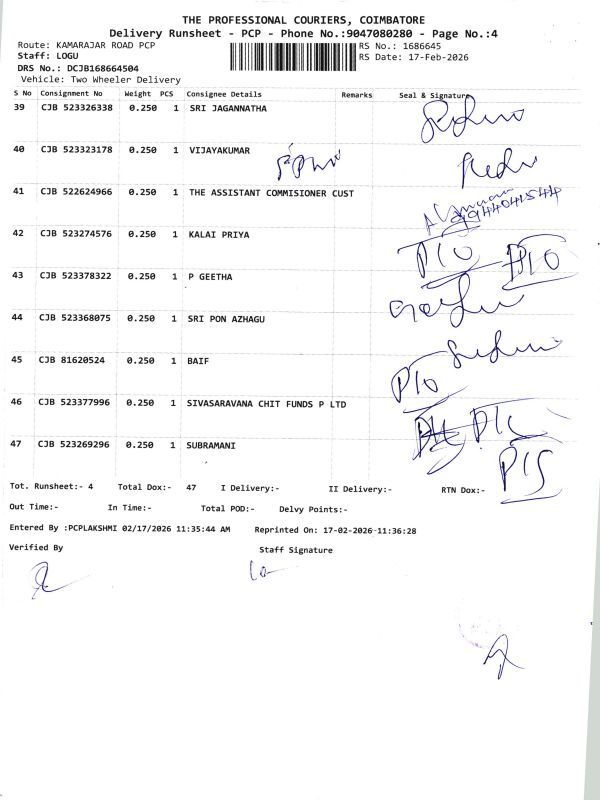 THE PROFESSIONAL COURIERS, COIMBATORE
Delivery Runsheet - PCP - Phone No.:9047080280 - Page No.:4
Route: KAMARAJAR ROAD PCP RS No.: 1686645
Staff: LOGU RS Date: 17-Feb-2026
DRS No.: DCJB168664504
Vehicle: Two Wheeler Delivery
S No Consignment No Weight PCS Consignee Details Remarks Seal & Signature
39 CJB 523326338 0.250 1 SRI JAGANNATHA
40 CJB 523323178 0.250 1 VIJAYAKUMAR
41 CJB 522624966 0.250 1 THE ASSISTANT COMMISIONER CUST
9944041544
42 CJB 523274576 0.250 1 KALAI PRIYA
43 CJB 523378322 0.250 1 P GEETHA
44 CJB 523368075 0.250 1 SRI PON AZHAGU
45 CJB 81620524 0.250 1 BAIF
46 CJB 523377996 0.250 1 SIVASARAVANA CHIT FUNDS P LTD
47 CJB 523269296 0.250 1 SUBRAMANI
Tot. Runsheet:- 4 Total Dox:- 47 I Delivery:- II Delivery:- RTN Dox:-
Out Time:- In Time:- Total POD:- Delvy Points:-
Entered By :PCPLAKSHMI 02/17/2026 11:35:44 AM Reprinted On: 17-02-2026-11:36:28
Verified By Staff Signature